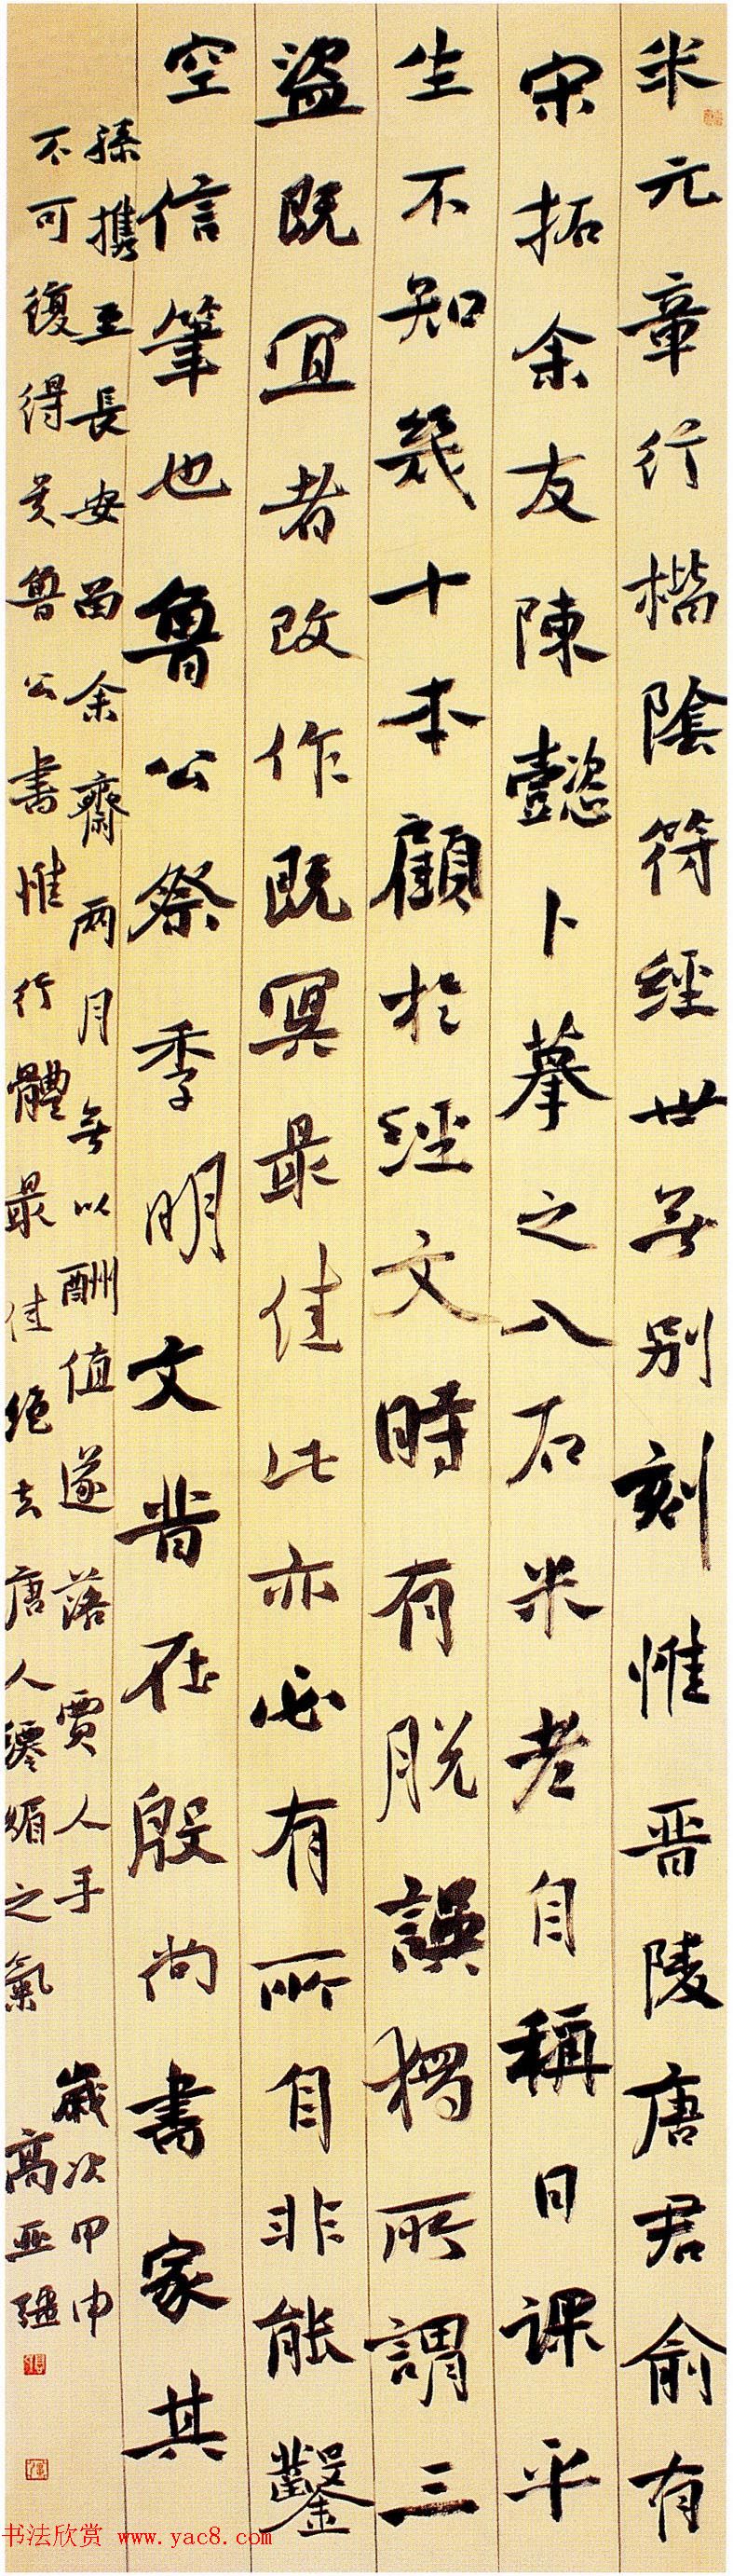 米元章行楷陰符經世無別刻惟晋陵唐君俞有
宋拓余友陳懿卜摹之入石米老自稱日課平
生不知幾十本顧於經文時有脱誤獨所謂三
盜既宜者改作既冥最佳此亦必有所自非能鑿
空信筆也魯公祭季明文昔在殷尚書家其
孫携至長安留余齋兩月無以酬值遂落賈人手
不可復得矣魯公書惟行體最佳絕去唐人纖媚之氣
歲次甲申
高亚
书法欣赏 www.yac8.com